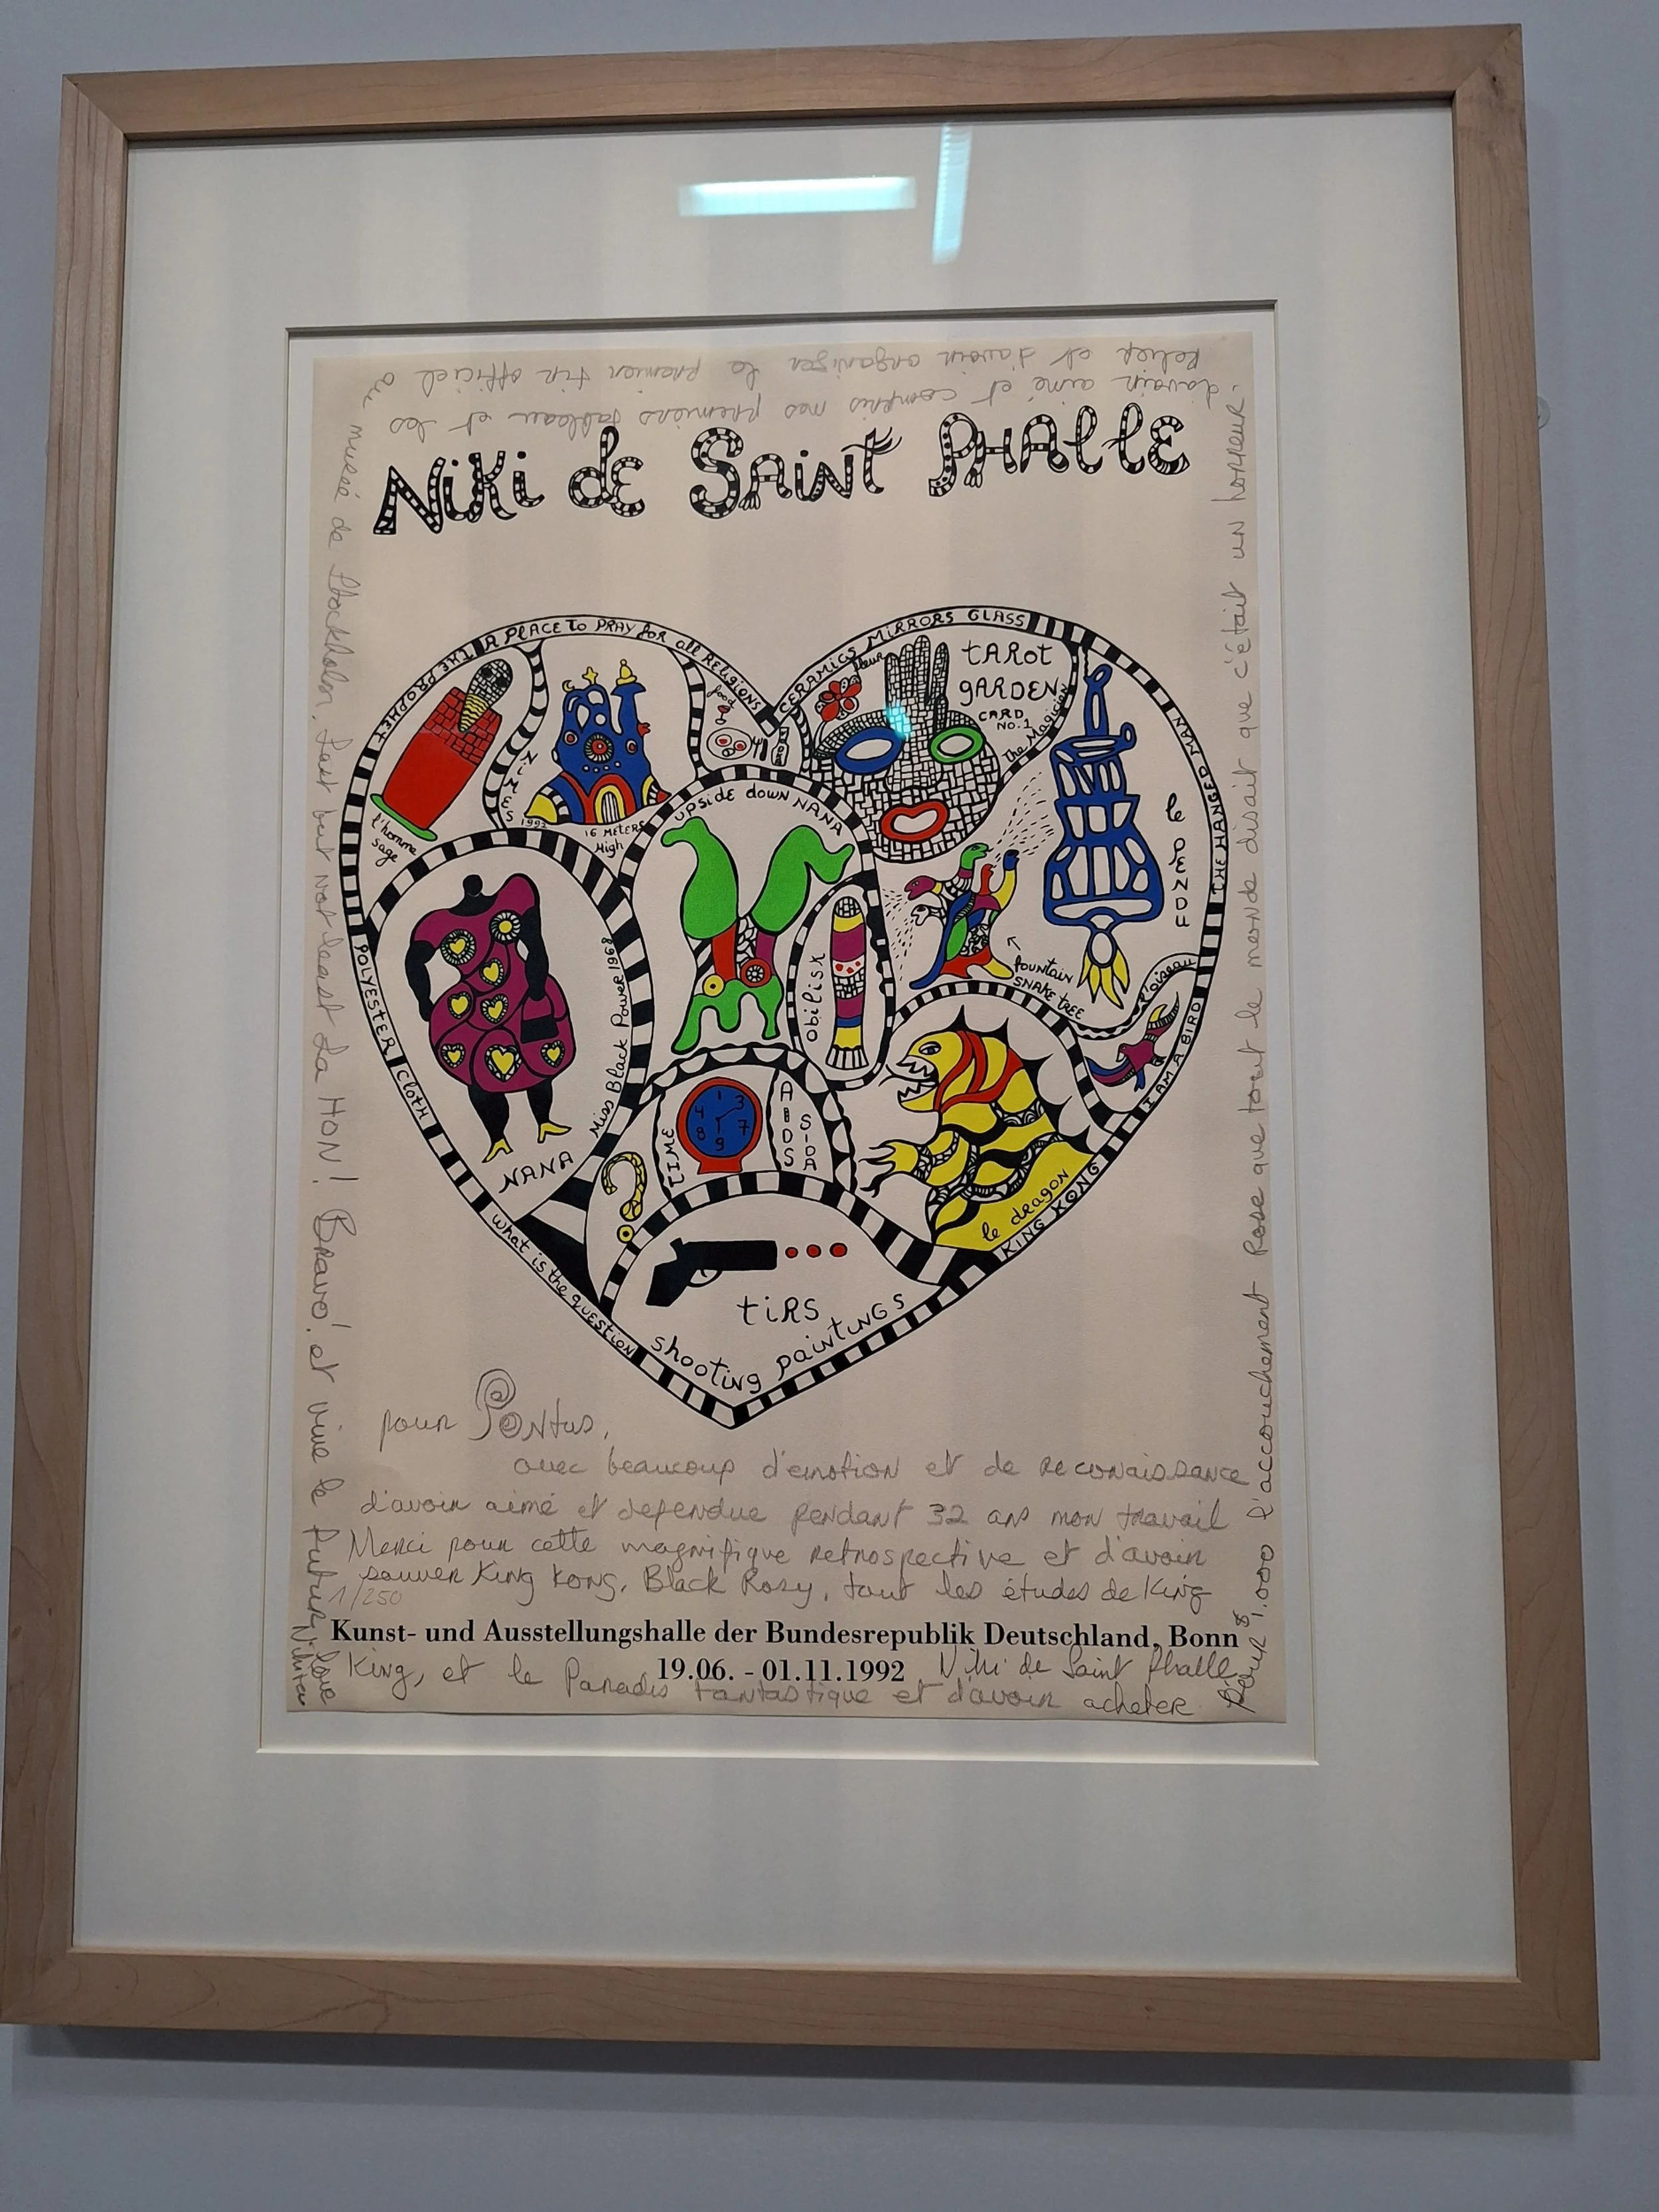 Niki de Saint Phalle
THE PROPHET
A PLACE to PRAY for all RELIGIONS
CERAMICS MIRRORS GLASS
THE HANGED MAN
I AM A BIRD
KING KONG
POLYESTER
Cloth
What is the question
l'homme
sage
NIMES 1992
16 METERS
High
food
fleur
tARot
gARDEN
CARD
NO. 1
The Magician
le PENDU
UPSidE down NANA
Miss Black Power 1968
NANA
Obilisk
fountain
SNAKE tREE
l'oiseau
le dragon
TIME
1 3 7 9 8 4
ABDS
SIDA
?
tiRS
shooting paintiNGS
pour Pontus,
avec beaucoup d'emotion et de reconaissance
d'avoir aimé et defendue pendant 32 ans mon travail
Merci pour cette magnifique retrospective et d'avoir
sauver King Kong, Black Rosy, tout les études de King
1/250
Kunst- und Ausstellungshalle der Bundesrepublik Deutschland, Bonn
19.06. - 01.11.1992
Niki de Saint Phalle
King, et le Paradis fantastique et d'avoir acheter
pour $ 1.000 l'accouchement Rose que tout le monde disait que c'était un horreur.
d'avoir aimé et compris mes premiers tableau et les
Relief et d'avoir organiser le premier tir officiel au
musée de Stockholm. Last but not least La HON! Bravo! et vive le futur
love